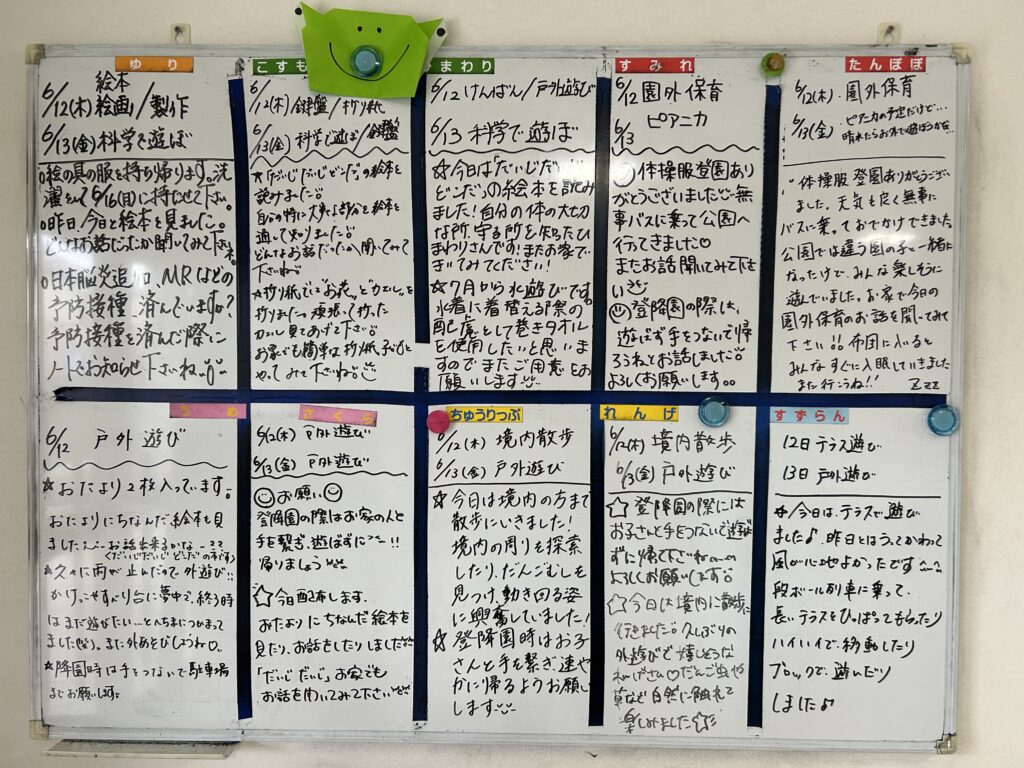 ゆり
絵本
6/12(木) 絵画り/製作
6/13(金)科学で遊ぼ
○絵の具の服を持ち帰ります。洗
濯をして6/16(月)に持たせて下さい。
○昨日、今日と絵本を見ました。
どんなお話だったか聞いてみて下さい。
○日本脳炎追加、MRなどの
予防接種、済んでいますか?
予防接種を済んだ際に
ノートでお知らせ下さいね。
こすも
6/12(木)鍵盤/折り紙
6/13(金)科学で遊ぼ/鍵盤
☆「だいじだいじどーこだ」の絵本を
読みました!
自分の特に大事な部分を絵本を
通して知りました!
どんなお話だったか、聞いてみて
下さいね
☆折り紙で"お花"と"カエル"を
折りました。頑張って折った
カエル見てあげて下さい
お家でも簡単な折り紙子どもと
やってみて下さいね
まわり
6/12けんばん/戸外遊び
6/13 科学で遊ぼ
☆今日は「だいじだいじ
どこだ」の絵本を読み
ました!自分の体の大切
な所、守る所を知ったひ
まわりさんです!またお家で
きいてみてください!
☆7月から水遊びです。
水着に着替える際の
配慮として巻きタオル
を使用したいと思いま
すのでまたご用意をお
願いします
すみれ
6/12 園外保育
6/3 ピアニカ
体操服登園あり
がとうございました 無
事バスに乗って公園へ
行ってきました♡
またお話聞いてみて下さ
い
登降園の際は、
遊ばず手をつないで帰
ろうねとお話しました
よろしくお願いします。
たんぽぽ
6/12(木) 園外保育
6/13(金) ピアニカの予定だけど…
晴れたらお外で遊ぼうかな…
・体操服登園ありがとうござい
ました。天気も良く無事に
バスに乗っておでかけできました。
公園では違う園の子と一緒に
なったけど、みんな楽しそうに
遊んでいました。お家で今日の
園外保育のお話を聞いてみて
下さい!!布団に入ると
みんなすぐに入眠していきました
また行こうね!! Zzz
うめ
6/12 戸外遊び
☆おたより2枚入っています。
おたよりにちなんだ絵本を見
ました お話出来るかな…
くだいじだいじどーこだの本です
☆久々に雨が止んだので外遊び!!
かけっこやすべり台に夢中で、終う時
はまだ遊びたい…とんまちにつかまって
ました(笑)。また外あそびしようね♡
☆降園時は手をつないで駐車場
までお願いします
さくら
6/12(木) 戸外遊び
6/13(金) 戸外遊び
お願い
登降園の際はお家の人と
手を繋ぎ、遊ばずに!!
帰りましょう
☆今日配布します。
おたよりにちなんだ絵本を
見たり、お話をしたりしました
「だいじだいじ」お家でも
お話を聞いてみて下さい
ちゅうりっぷ
6/12(木) 境内散歩
6/13(金) 戸外遊び
☆今日は境内の方まで
散歩にいきました!
境内の周りを探索
したり、だんごむしを
見つけ、動き回る姿
に興奮していました!
☆登降園時はお子
さんと手を繋ぎ速や
かに帰るようお願い
します
れんげ
6/12(木) 境内散歩
6/3(金)戸外遊び
☆登降園の際には
お子さんと手をつないで遊ば
ずに帰って下さいね
よろしくお願いします。
☆今日は境内に散歩に
行きました 久しぶりの
外遊びで嬉しそうな
れんげさん♡だんご虫や
草など自然に触れて
楽しみました☆
すずらん
12日 テラス遊び
13日 戸外遊び
☆今日は、テラスで遊び
ました♪昨日とはうってかわって
風が心地よかったです
段ボール列車に乗って、
長いテラスをひっぱってもらったり
ハイハイで、移動したり
ブロックで、遊んだり
しました♪